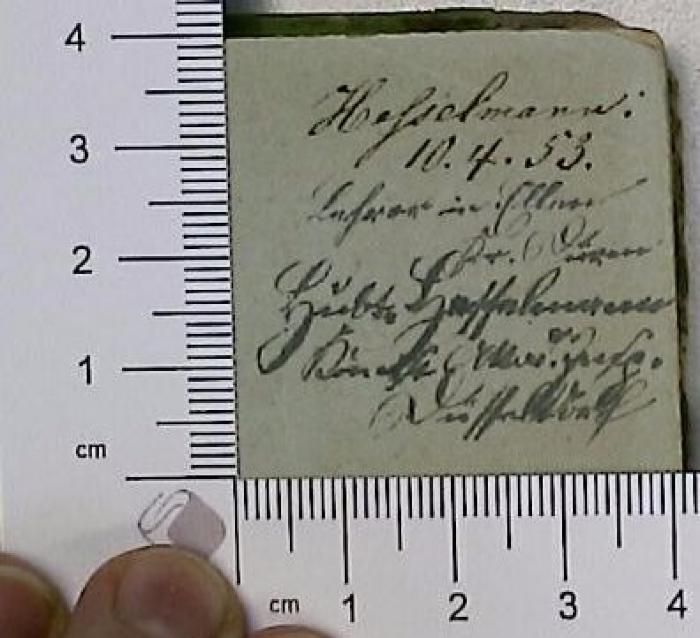 4
3
2
1
cm
Hesselmann:
10.4.53.
Lehrer in Ellen
Kr. Düren
Hubt. Hesselmann
Königl.
Düsseldorf
cm 1 2 3 4